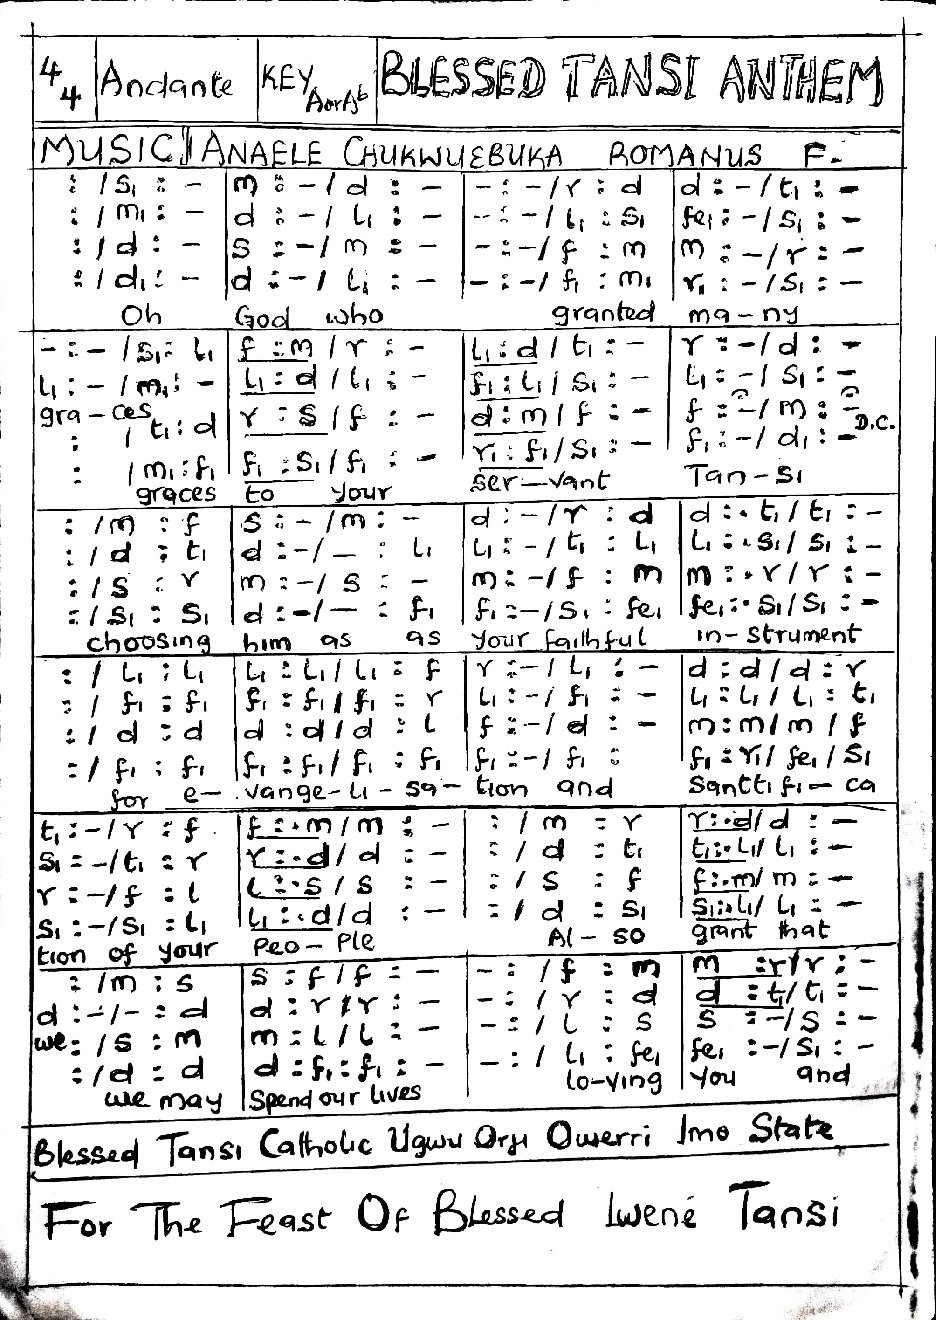 4/4 Andante KEY A or Ab BLESSED TANSI ANTHEM
MUSIC || ANAELE CHUKWUEBUKA ROMANUS F.
: / s₁ : – | m : – / d : – | – : – / r : d | d : – / t₁ : –
: / m₁ : – | d : – / l₁ : – | – : – / l₁ : s₁ | fe₁ : – / s₁ : –
: / d : – | s : – / m : – | – : – / f : m | m : – / r : –
: / d₁ : – | d : – / l₁ : – | – : – / f₁ : m₁ | r₁ : – / s₁ : –
Oh God who granted ma-ny
– : – / s₁ : l₁ | f : m / r : – | l₁ : d / t₁ : – | r : – / d : –
l₁ : – / m₁ : – | l₁ : d / l₁ : – | f₁ : l₁ / s₁ : – | l₁ : – / s₁ : –
gra-ces
: / t₁ : d | r : s / f : – | d : m / f : – | f : – / m : – D.C.
: / m₁ : f₁ | f₁ : s₁ / f₁ : – | r₁ : f₁ / s₁ : – | f₁ : – / d₁ : –
graces to your ser-vant Tan-si
: / m : f | s : – / m : – | d : – / r : d | d : . t₁ / t₁ : –
: / d : t₁ | d : – / – : l₁ | l₁ : – / t₁ : l₁ | l₁ : . s₁ / s₁ : –
: / s : r | m : – / s : – | m : – / f : m | m : . r / r : –
: / s₁ : s₁ | d : – / – : f₁ | f₁ : – / s₁ : fe₁ | fe₁ : . s₁ / s₁ : –
choosing him as as your faithful in-strument
: / l₁ : l₁ | l₁ : l₁ / l₁ : f | r : – / l₁ : – | d : d / d : r
: / f₁ : f₁ | f₁ : f₁ / f₁ : r | l₁ : – / f₁ : – | l₁ : l₁ / l₁ : t₁
: / d : d | d : d / d : l | f : – / d : – | m : m / m / f
: / f₁ : f₁ | f₁ : f₁ / f₁ : f₁ | f₁ : – / f₁ : | f₁ : r₁ / fe₁ / s₁
for e- vange-li-sa-tion and Santtifi-ca
t₁ : – / r : f | f : . m / m : – | : / m : r | r : . d / d : –
s₁ : – / t₁ : r | r : . d / d : – | : / d : t₁ | t₁ : . l₁ / l₁ : –
r : – / f : l | l : . s / s : – | : / s : f | f : . m / m : –
s₁ : – / s₁ : l₁ | l₁ : . d / d : – | : / d : s₁ | s₁ : . l₁ / l₁ : –
tion of your Peo-Ple Al-so grant that
: / m : s | s : f / f : – | – : / f : m | m : r / r : –
d : – / – : d | d : r / r : – | – : / r : d | d : t₁ / t₁ : –
we : / s : m | m : l / l : – | – : / l : s | s : – / s : –
: / d : d | d : f₁ : f₁ : – | – : / l₁ : fe₁ | fe₁ : – / s₁ : –
we may Spend our lives lo-ying you and
Blessed Tansi Catholic Ugwu Orji Owerri Imo State
For The Feast Of Blessed Iwene Tansi